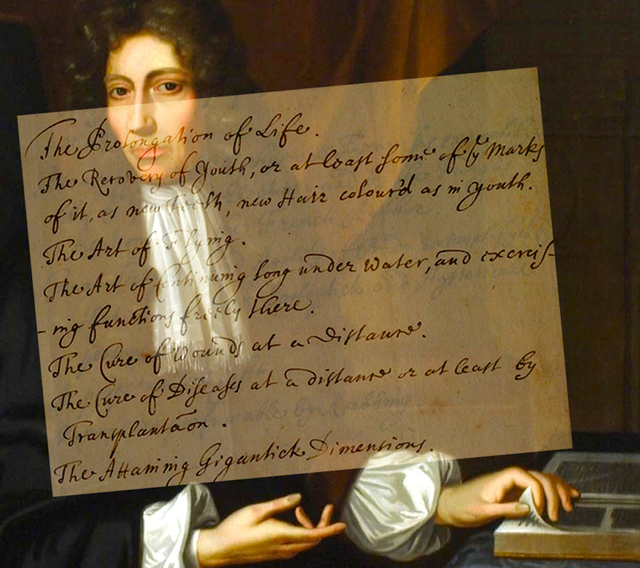 The Prolongation of Life.
The Recovery of Youth, or at least some of yͤ Marks
of it, as new Teeth, new Hair colour'd as in youth.
The Art of Flying.
The Art of Continuing long under water, and exercis-
-ing functions freely there.
The Cure of Wounds at a Distance.
The Cure of Diseases at a distance or at least by
Transplantaõn.
The Attaining Gigantick Dimensions.